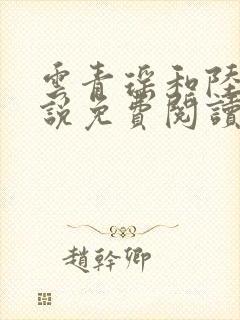 雲青瑤和陸
說免費閱讀
趙幹卿